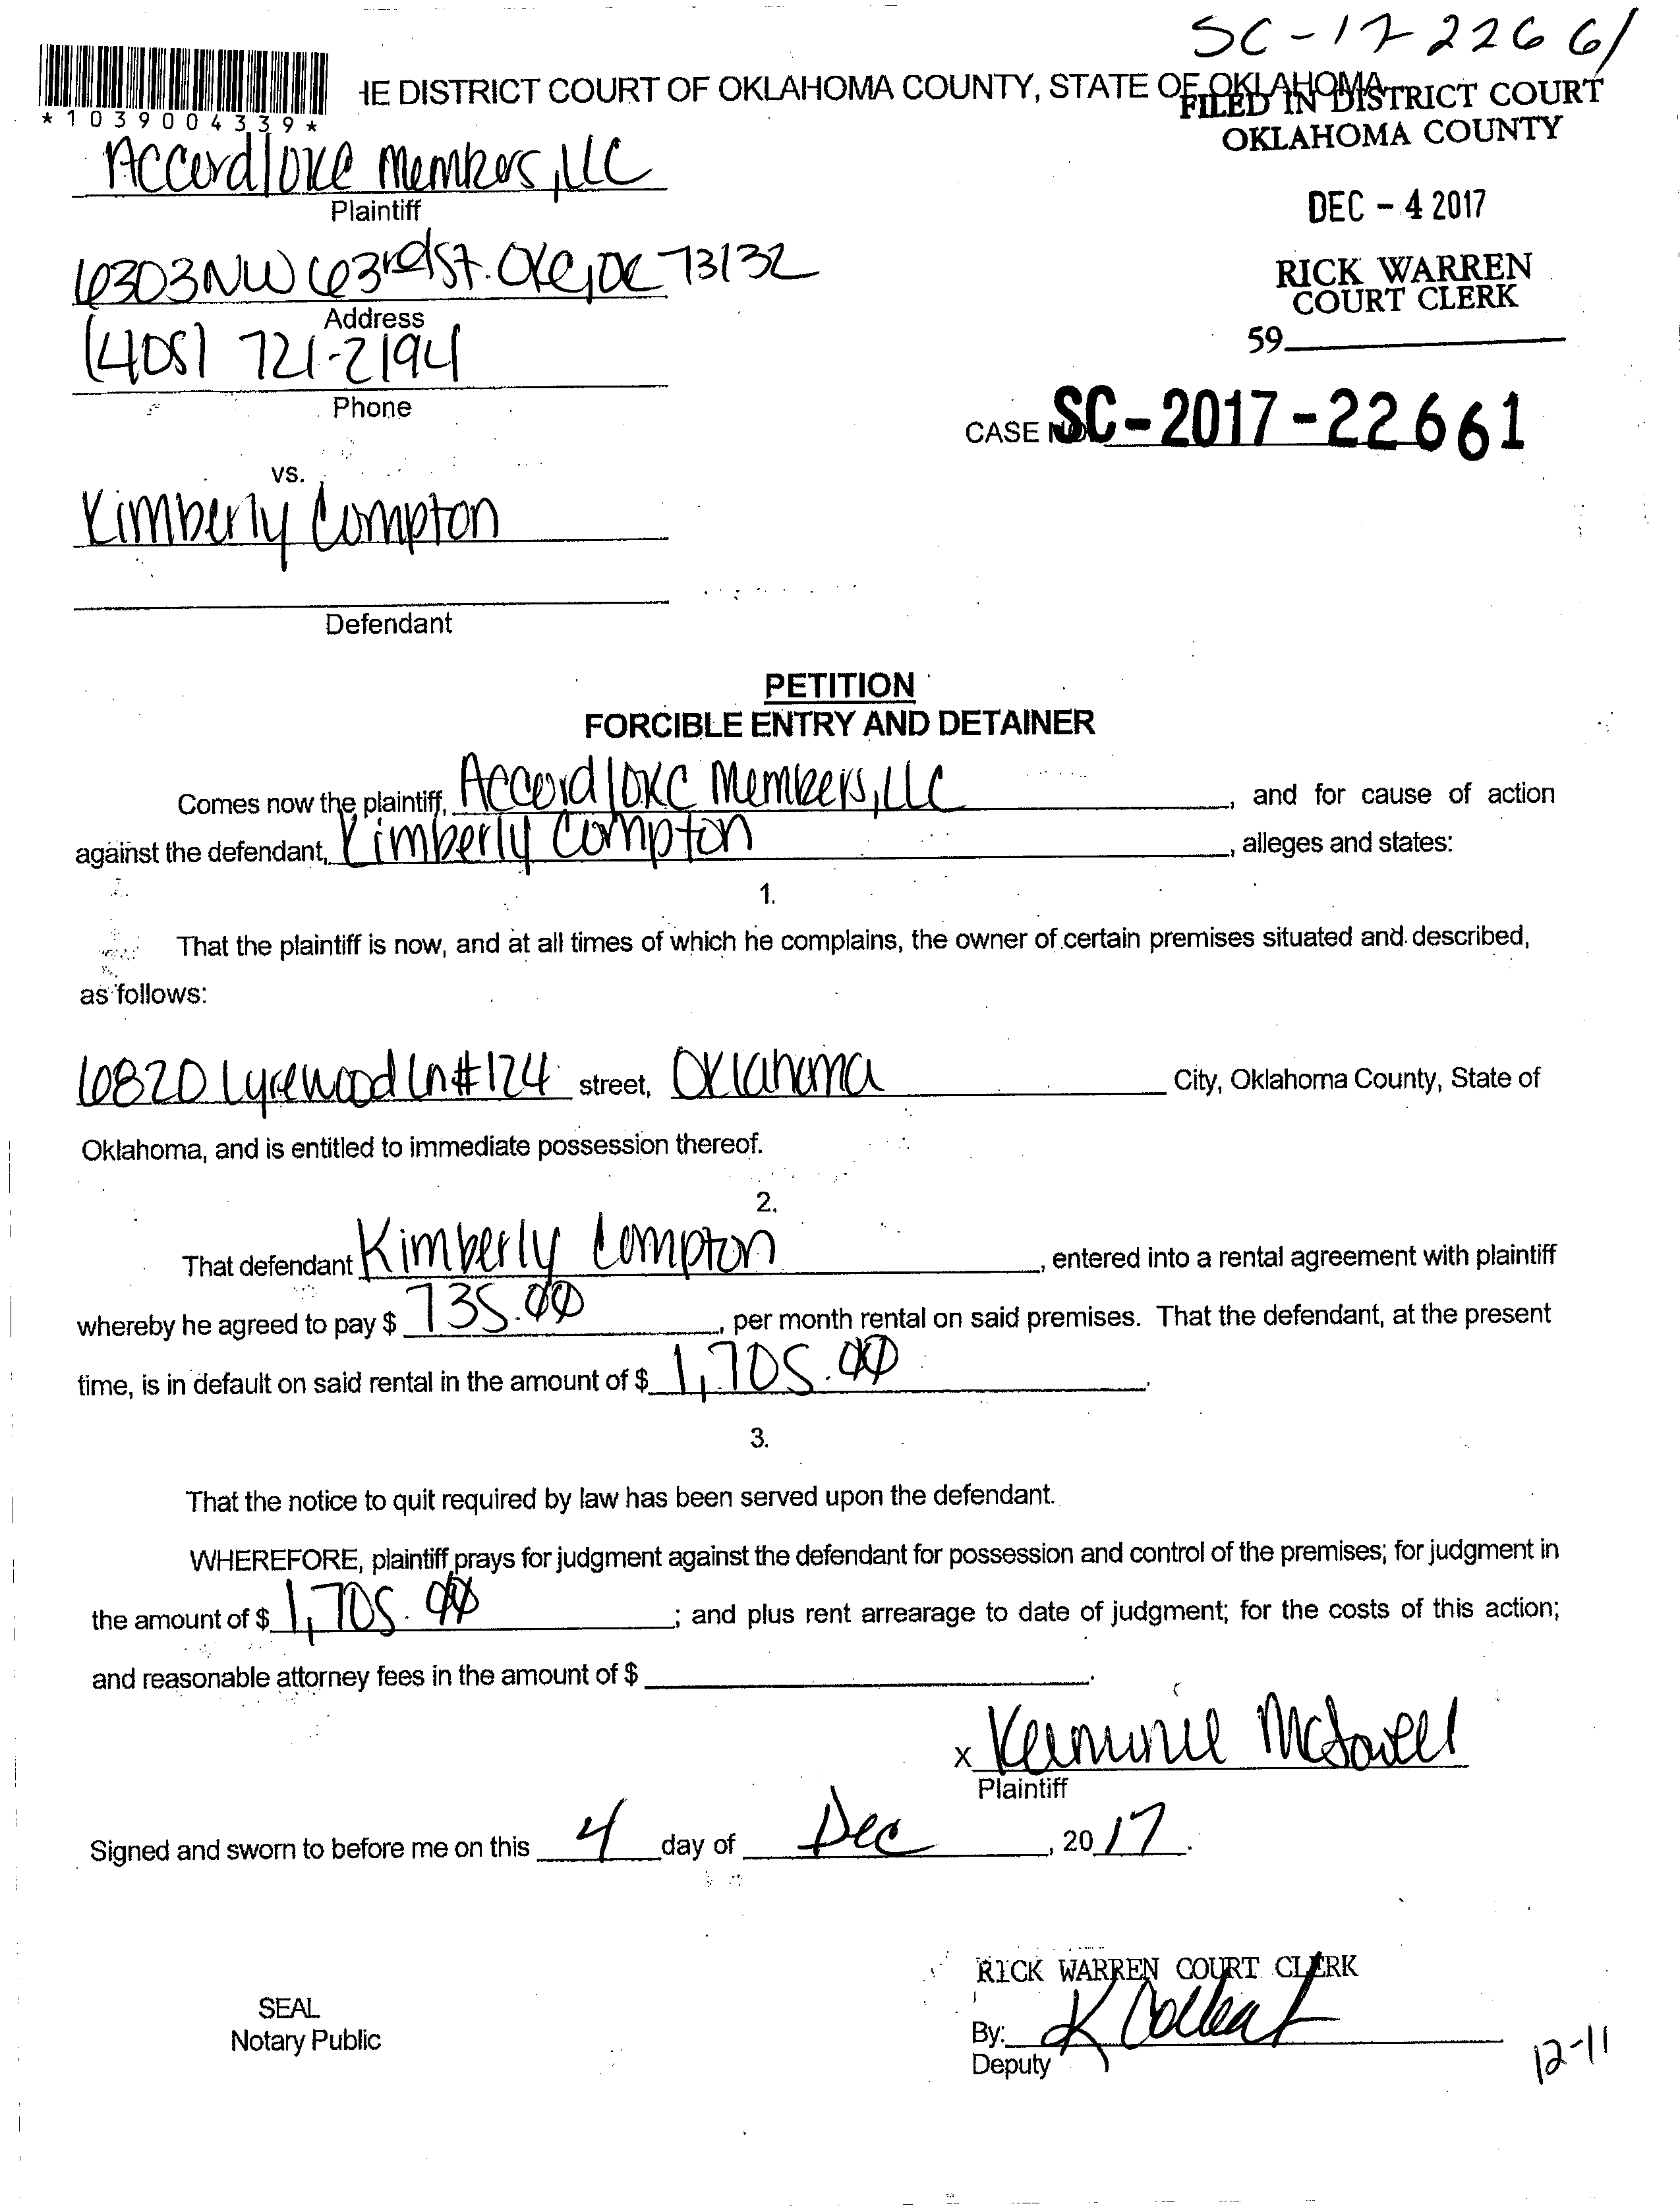 SC-17-22661
*1039004339*
HE DISTRICT COURT OF OKLAHOMA COUNTY, STATE OF OKLAHOMA
FILED IN DISTRICT COURT
OKLAHOMA COUNTY
Accord/OKC Members, LLC
Plaintiff
DEC - 4 2017
6303 NW 63rd St. OKC, OK 73132
Address
RICK WARREN
COURT CLERK
59
(405) 721-2194
Phone
CASE NO. SC-2017-22661
vs.
Kimberly Compton
Defendant
PETITION
FORCIBLE ENTRY AND DETAINER
Comes now the plaintiff, Accord/OKC Members, LLC, and for cause of action
against the defendant, Kimberly Compton, alleges and states:
1.
That the plaintiff is now, and at all times of which he complains, the owner of certain premises situated and described,
as follows:
6820 Lyrewood Ln #124 street, Oklahoma City, Oklahoma County, State of
Oklahoma, and is entitled to immediate possession thereof.
2.
That defendant Kimberly Compton, entered into a rental agreement with plaintiff
whereby he agreed to pay $ 735.00, per month rental on said premises. That the defendant, at the present
time, is in default on said rental in the amount of $ 1,705.00.
3.
That the notice to quit required by law has been served upon the defendant.
WHEREFORE, plaintiff prays for judgment against the defendant for possession and control of the premises; for judgment in
the amount of $ 1,705.00; and plus rent arrearage to date of judgment; for the costs of this action;
and reasonable attorney fees in the amount of $ .
x
Plaintiff
Signed and sworn to before me on this 4 day of Dec, 2017.
RICK WARREN COURT CLERK
SEAL
Notary Public
By: K
Deputy
12-11